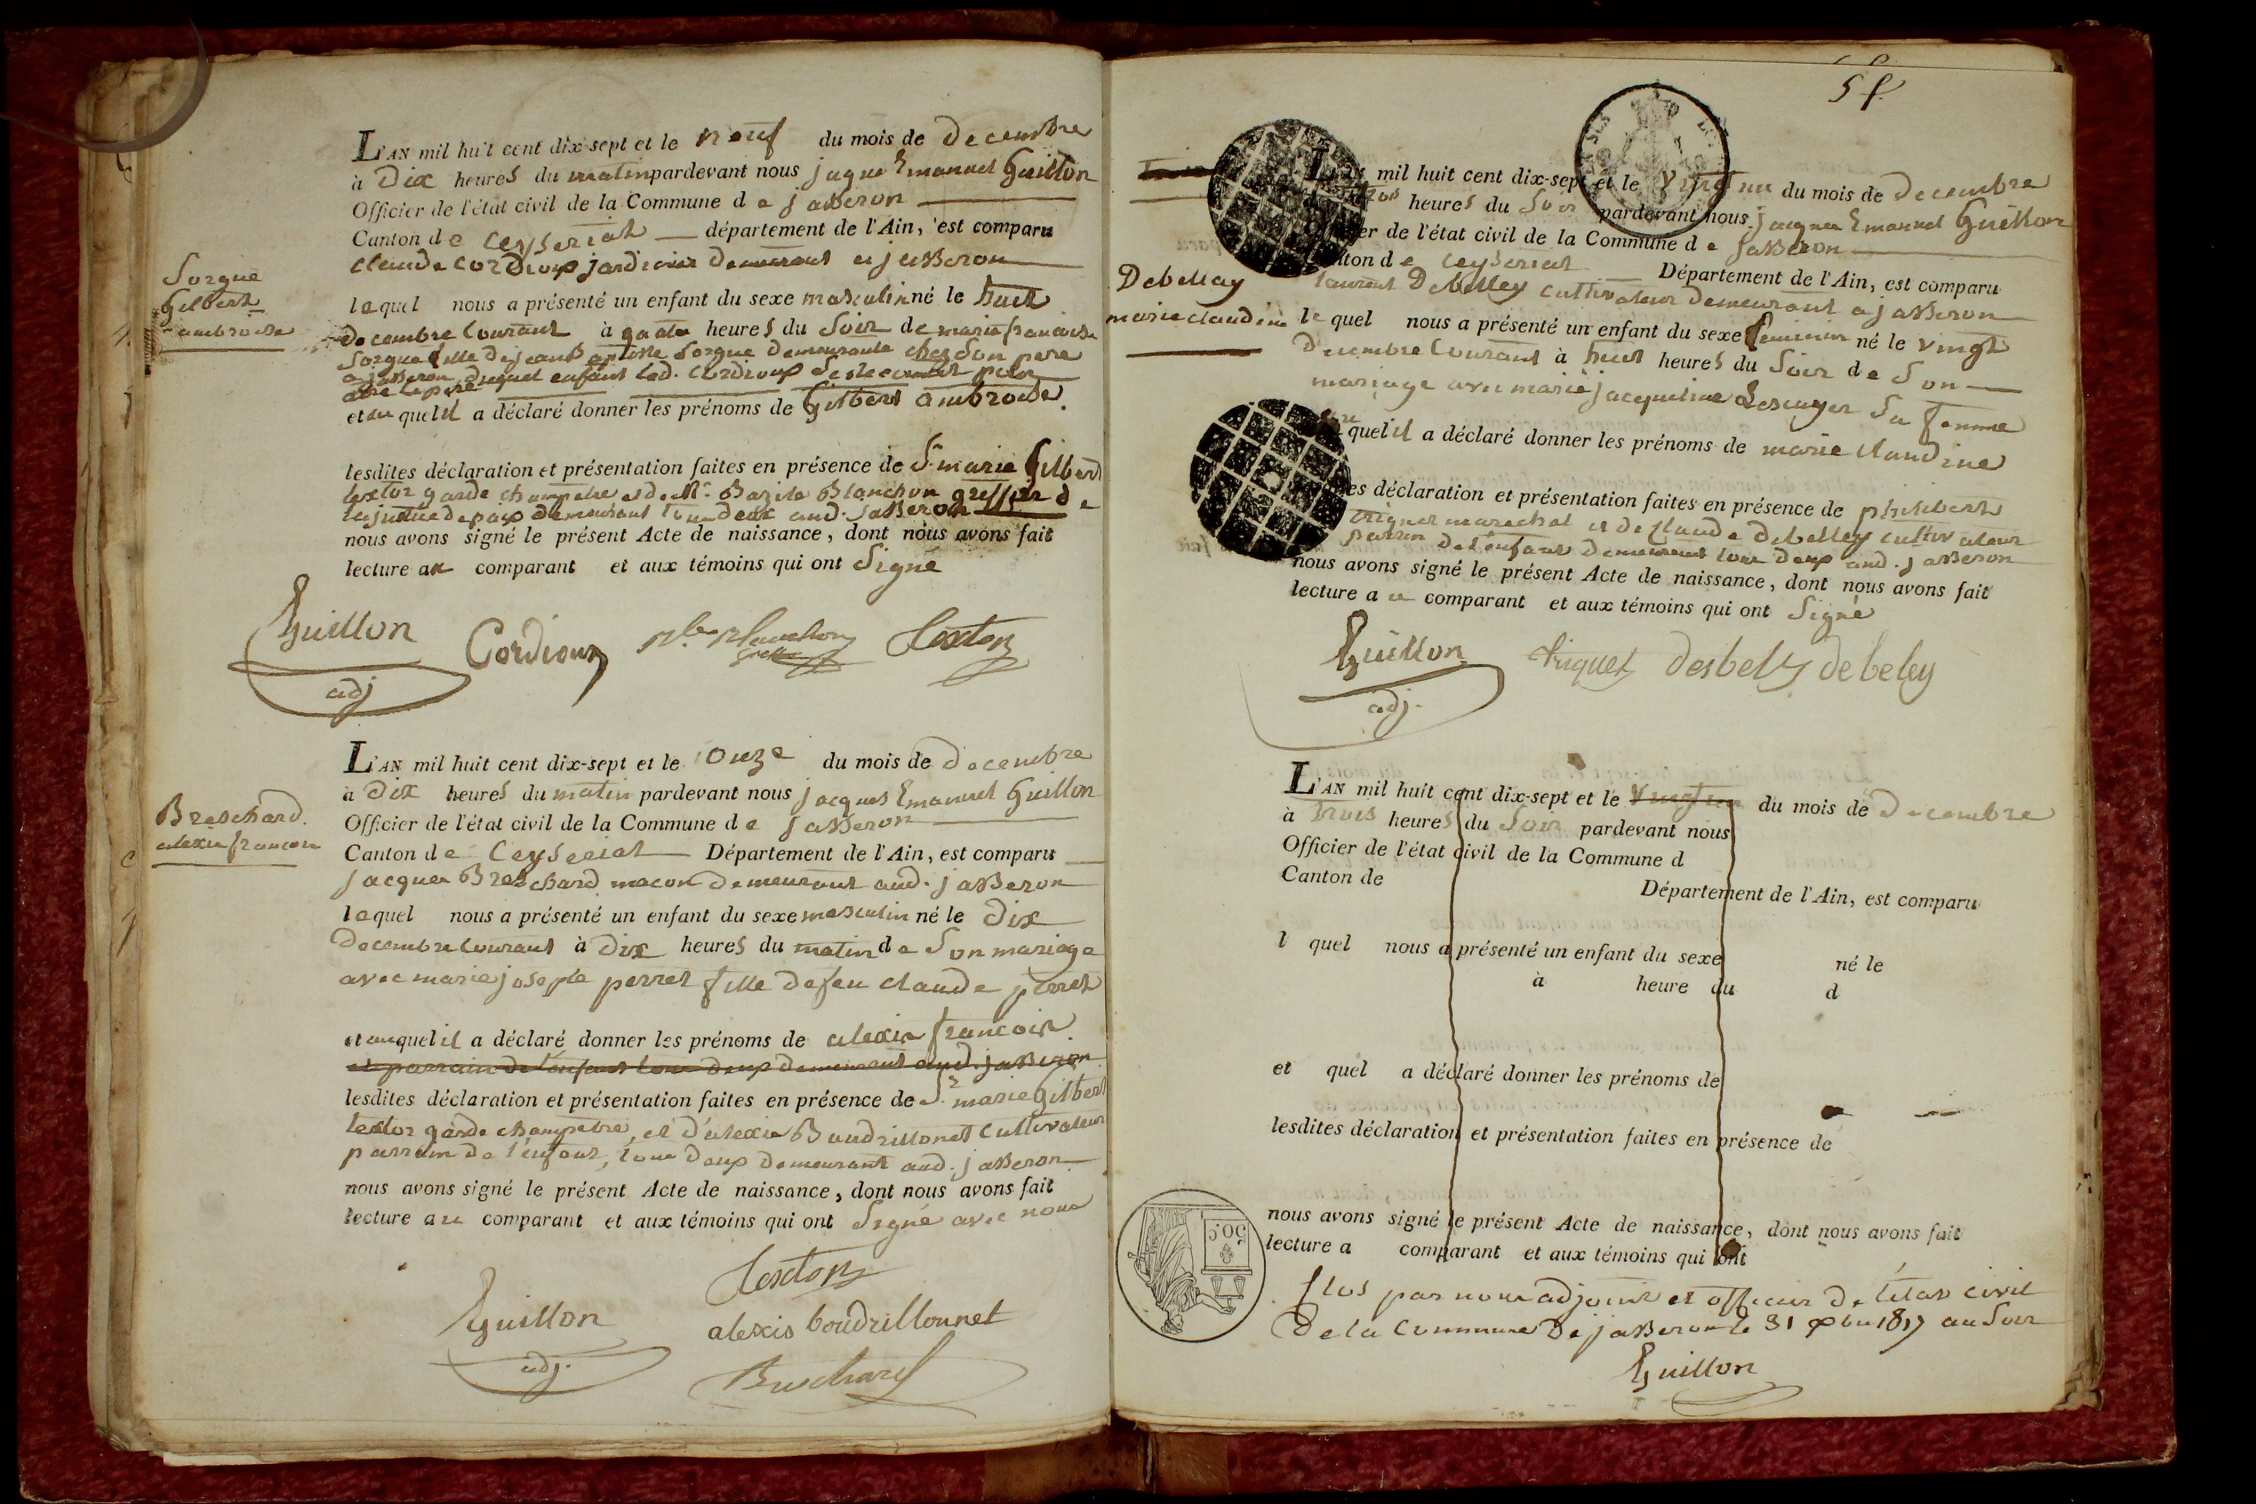 Sorgue
Gilbert
ambroise
L'AN mil huit cent dix-sept et le neuf du mois de decembre
à Dix heures du matin pardevant nous jaque Emanuel Guillon
Officier de l'état civil de la Commune de jasseron
Canton de Ceyseriat département de l'Ain, est comparu
claude Cordioux jardinier demeurant a jasseron
lequel nous a présenté un enfant du sexe masculin né le huit
decembre Courant à quatre heures du Soir de marie francoise
Sorgue fille de jean B aptiste Sorgue demeurante chez Son pere
a jasseron duquel enfant led. Cordioux
être le pere
et auquel il a déclaré donner les prénoms de Gilbert ambroise.
lesdites déclaration et présentation faites en présence de Sr. marie Gilbert
textor garde champetre et de Mr. Bazile Blanchon greffier de
la justice de paix demeurant tous deux aud. jasseron
nous avons signé le présent Acte de naissance, dont nous avons fait
lecture au comparant et aux témoins qui ont Signé
Guillon Cordioux Blanchon Textor
adj
Breschard
alexis francois
L'AN mil huit cent dix-sept et le Onze du mois de decembre
à Dix heures du matin pardevant nous jacques Emanuel Guillon
Officier de l'état civil de la Commune de jasseron
Canton de Ceyseriat Département de l'Ain, est comparu
jacques Breschard macon demeurant aud. jasseron
lequel nous a présenté un enfant du sexe masculin né le Dix
Decembre Courant à Dix heures du matin de Son mariage
avec marie josephe perret fille de feu claude perret
et auquel il a déclaré donner les prénoms de alexis francois
et parrain de l'enfant tous deux demeurant aud. jasseron
lesdites déclaration et présentation faites en présence de Sr. marie Gilbert
textor garde champetre, et d'alexis Baudrillonet Cultivateur
parrain de l'enfant, tous deux demeurant aud. jasseron
nous avons signé le présent Acte de naissance, dont nous avons fait
lecture au comparant et aux témoins qui ont Signé avec nous
Textor
Guillon alexis boudrillonnet
adj. Breschard
Debellay
marie claudine
L'AN mil huit cent dix-sept et le Vingt un du mois de decembre
trois heures du Soir pardevant nous jacques Emanuel Guillon
Officier de l'état civil de la Commune de jasseron
Canton de Ceyseriat Département de l'Ain, est comparu
laurent Debelley cultivateur demeurant a jasseron
lequel nous a présenté un enfant du sexe feminin né le vingt
Decembre Courant à huit heures du Soir de Son
mariage avec marie jacqueline Lescuyer Sa femme
quel il a déclaré donner les prénoms de marie claudine
lesdites déclaration et présentation faites en présence de philibert
marechal et de Claude debelley cultivateur
parrin de l'enfant demeurant tous deux aud. jasseron
nous avons signé le présent Acte de naissance, dont nous avons fait
lecture au comparant et aux témoins qui ont Signé
Guillon desbelley debeley
adj.
L'AN mil huit cent dix-sept et le Vingt un du mois de decembre
à trois heures du Soir pardevant nous
Officier de l'état civil de la Commune d
Canton de Département de l'Ain, est comparu
l quel nous a présenté un enfant du sexe né le
à heure du d
et quel a déclaré donner les prénoms de
lesdites déclaration et présentation faites en présence de
nous avons signé le présent Acte de naissance, dont nous avons fait
lecture a comparant et aux témoins qui ont
50C
Clos par nous adjoint et officier de l'état civil
De la Commune de jasseron le 31 Xbre 1817 au Soir
Guillon